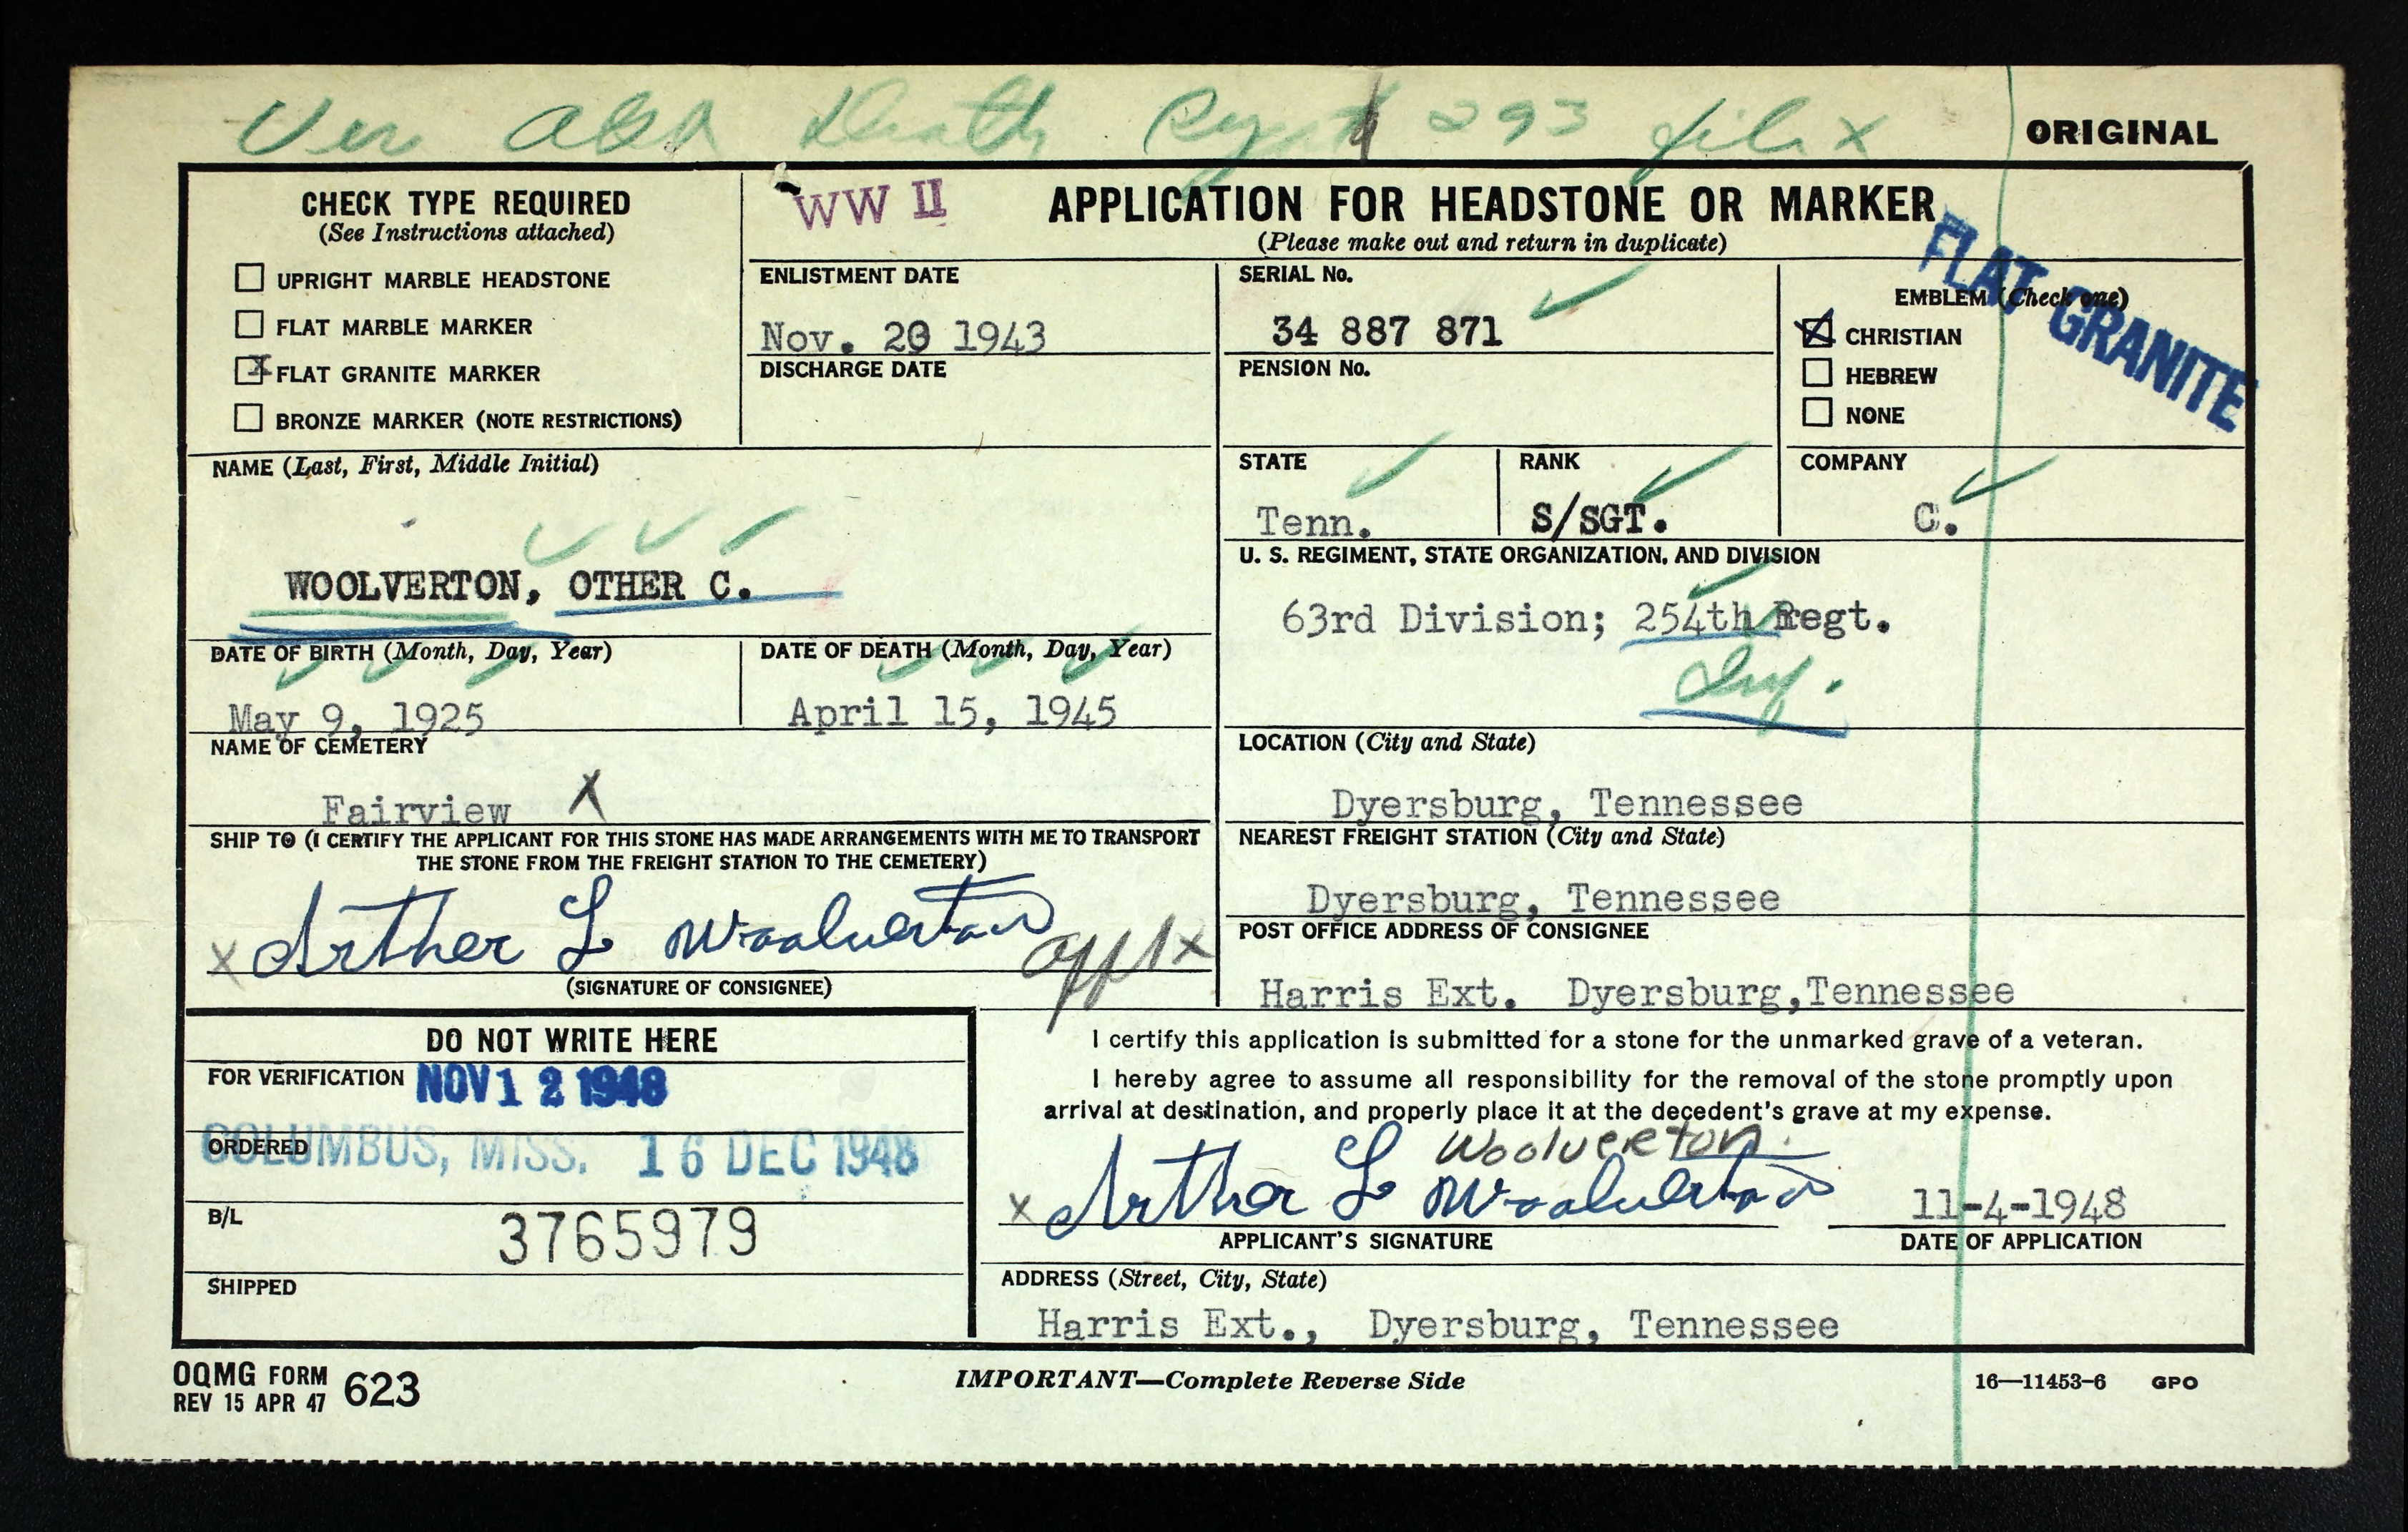 Ver AGO Death Rept 293 file X
ORIGINAL
CHECK TYPE REQUIRED
(See Instructions attached)
UPRIGHT MARBLE HEADSTONE
FLAT MARBLE MARKER
X FLAT GRANITE MARKER
BRONZE MARKER (NOTE RESTRICTIONS)
WW II
APPLICATION FOR HEADSTONE OR MARKER
(Please make out and return in duplicate)
FLAT GRANITE
ENLISTMENT DATE
Nov. 20 1943
DISCHARGE DATE
SERIAL No.
34 887 871
PENSION No.
EMBLEM (Check one)
X CHRISTIAN
HEBREW
NONE
NAME (Last, First, Middle Initial)
WOOLVERTON, OTHER C.
STATE
Tenn.
RANK
S/SGT.
COMPANY
C.
U. S. REGIMENT, STATE ORGANIZATION, AND DIVISION
63rd Division; 254th Regt.
Inf.
DATE OF BIRTH (Month, Day, Year)
May 9, 1925
DATE OF DEATH (Month, Day, Year)
April 15, 1945
NAME OF CEMETERY
Fairview X
LOCATION (City and State)
Dyersburg, Tennessee
SHIP TO (I CERTIFY THE APPLICANT FOR THIS STONE HAS MADE ARRANGEMENTS WITH ME TO TRANSPORT
THE STONE FROM THE FREIGHT STATION TO THE CEMETERY)
X Arther L Woolverton
appl X
(SIGNATURE OF CONSIGNEE)
NEAREST FREIGHT STATION (City and State)
Dyersburg, Tennessee
POST OFFICE ADDRESS OF CONSIGNEE
Harris Ext. Dyersburg,Tennessee
DO NOT WRITE HERE
FOR VERIFICATION NOV 12 1948
ORDERED
COLUMBUS, MISS. 16 DEC 1948
B/L
3765979
SHIPPED
I certify this application is submitted for a stone for the unmarked grave of a veteran.
I hereby agree to assume all responsibility for the removal of the stone promptly upon
arrival at destination, and properly place it at the decedent's grave at my expense.
Woolverton.
X Arther L Woolverton
11-4-1948
APPLICANT'S SIGNATURE
DATE OF APPLICATION
ADDRESS (Street, City, State)
Harris Ext., Dyersburg, Tennessee
OQMG FORM
REV 15 APR 47 623
IMPORTANT—Complete Reverse Side
16—11453-6 GPO